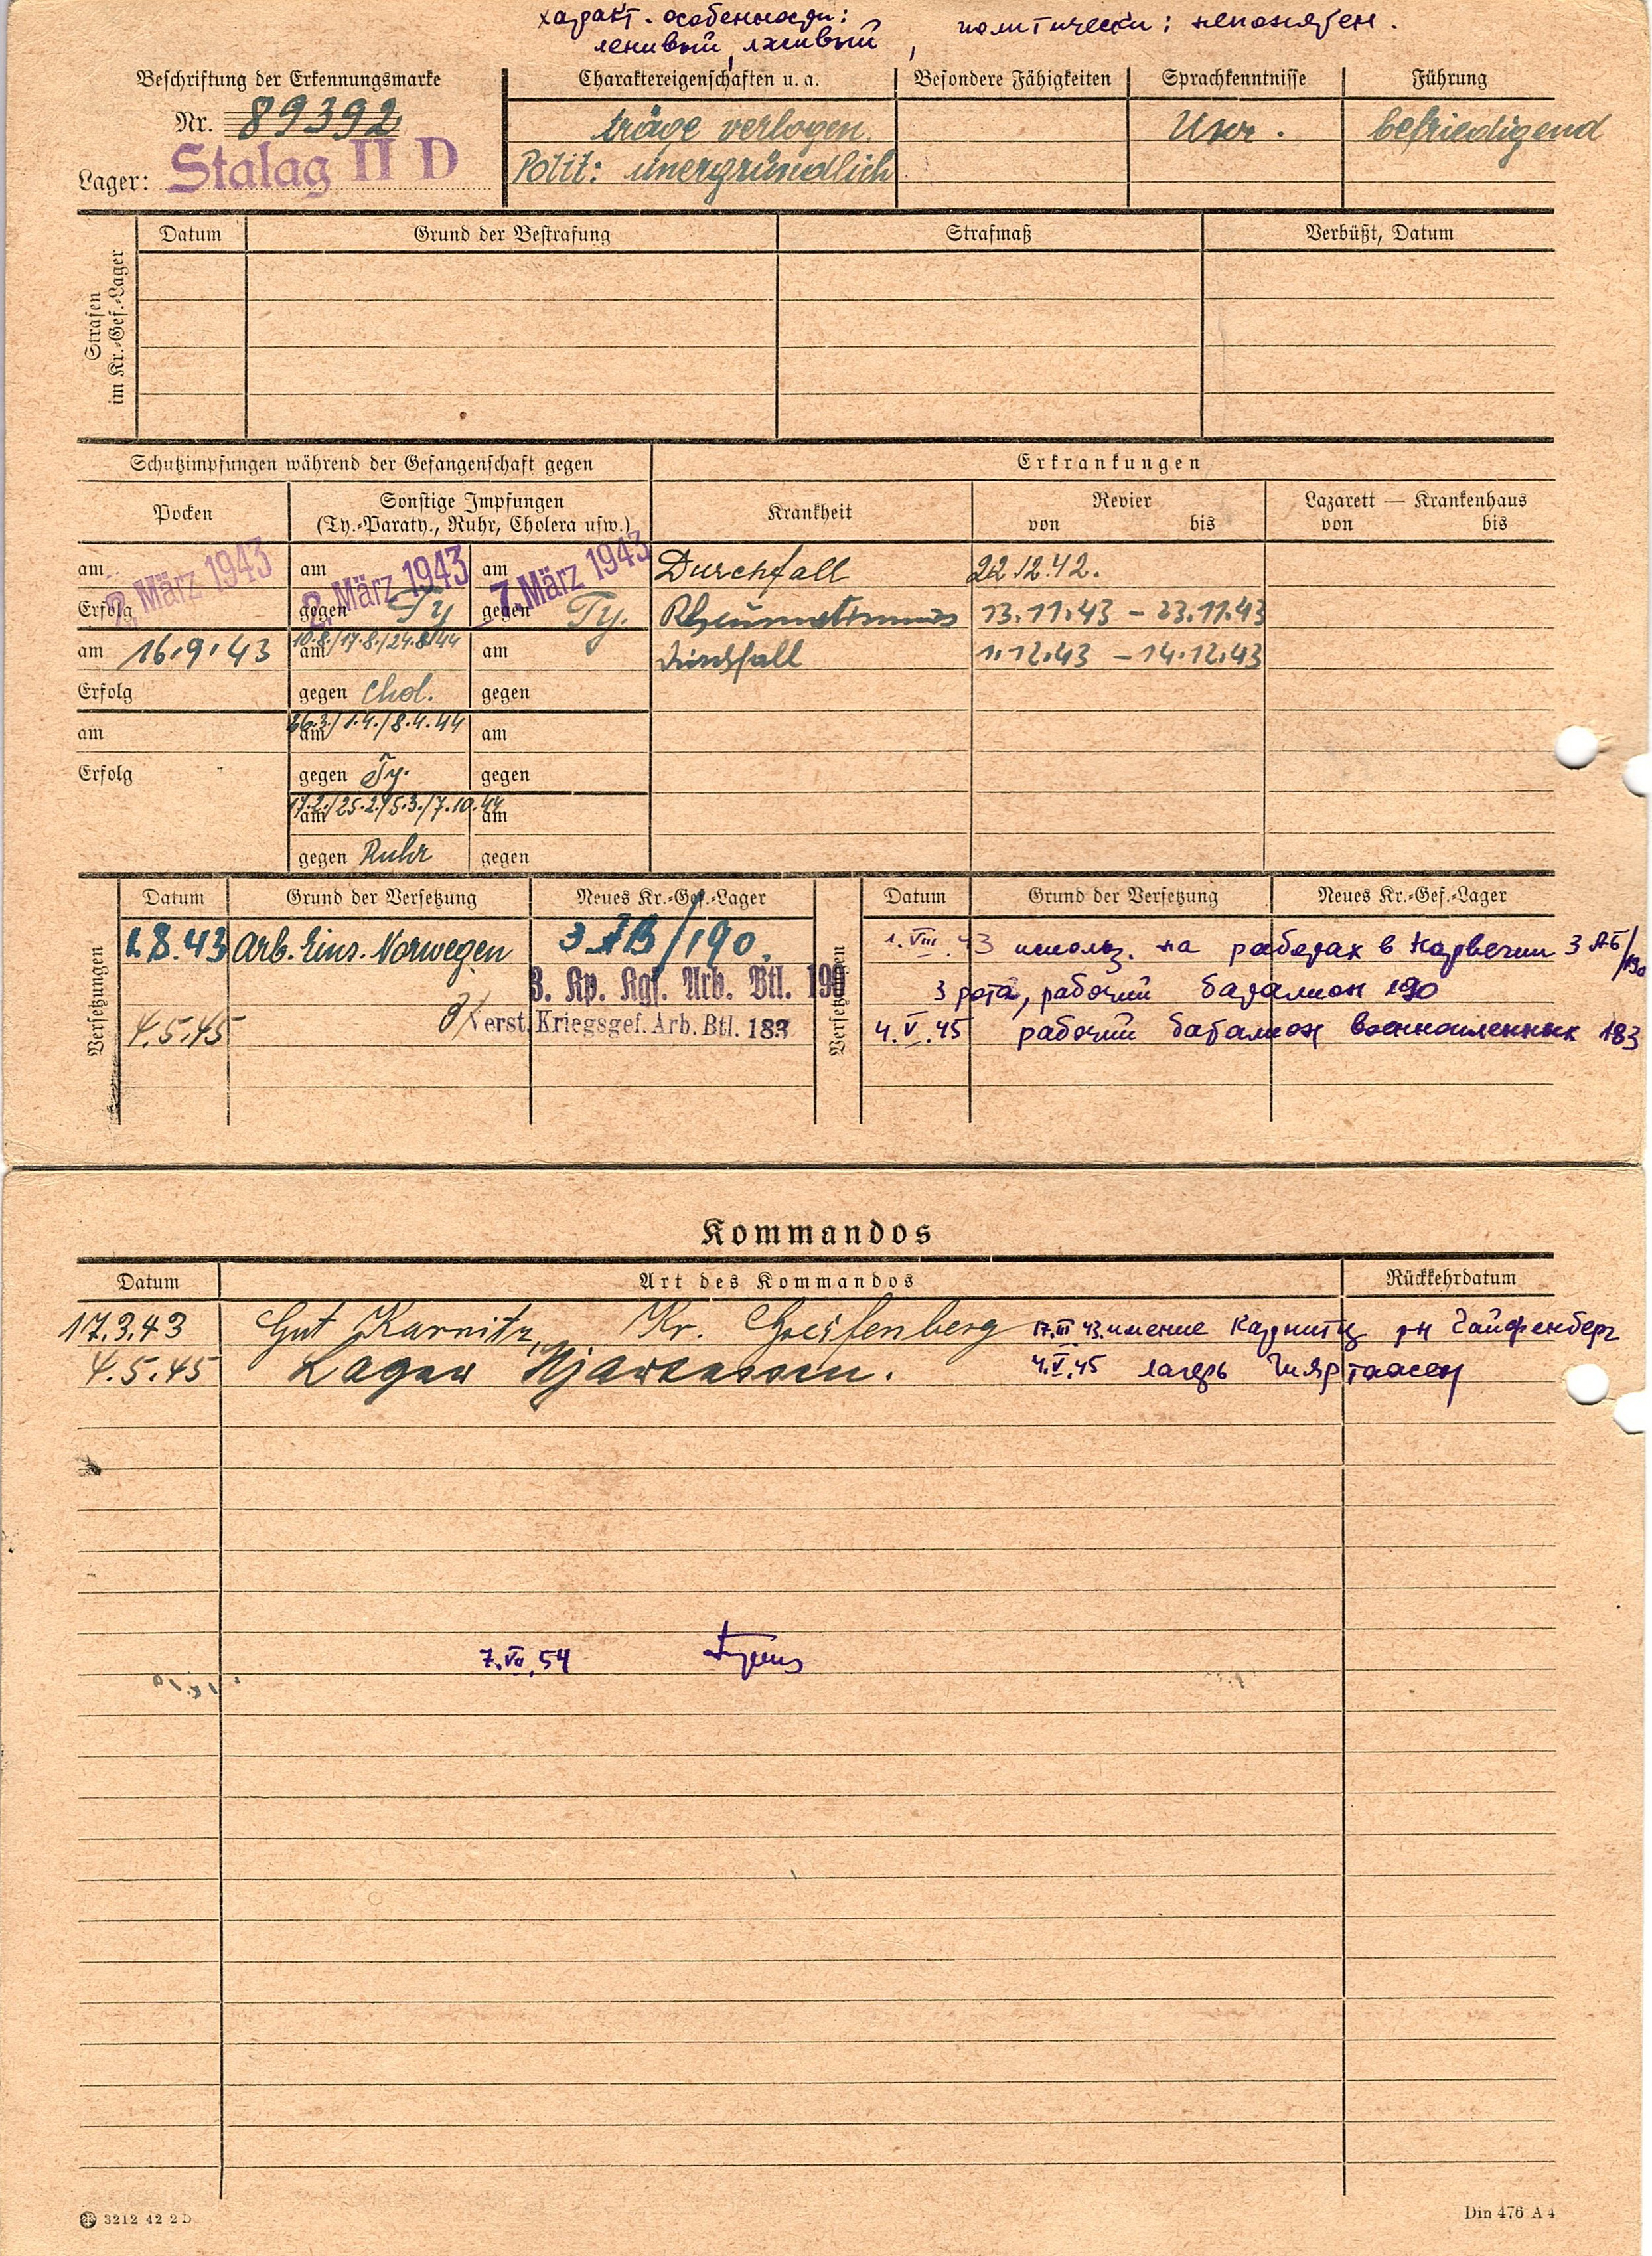 характ. особенности:
ленивый, лживый, политически: непонятен.
Beschriftung der Erkennungsmarke
Nr. 89392
Lager: Stalag II D
Charaktereigenschaften u. a.
träge verlogen
Polit: unergründlich
Besondere Fähigkeiten
Sprachkenntnisse
Ukr.
Führung
befriedigend
Strafen
im Kr.-Gef.-Lager
Datum
Grund der Bestrafung
Strafmaß
Verbüßt, Datum
Schutzimpfungen während der Gefangenschaft gegen
Erkrankungen
Pocken
Sonstige Impfungen
(Ty.-Paraty., Ruhr, Cholera usw.)
Krankheit
Revier
von bis
Lazarett — Krankenhaus
von bis
am 2. März 1943 am 2. März 1943 am 7. März 1943 Durchfall 22.12.42.
Erfolg gegen Ty gegen Ty. Rheumatismus 13.11.43 – 23.11.43
am 16.9.43 am 10.8./17.8./24.8.44 am Durchfall 1.12.43 – 14.12.43
Erfolg gegen Chol. gegen
am am 26.3./1.4./8.4.44 am
Erfolg gegen Ty. gegen
am 17.2./25.2./5.3./7.10.44 am
gegen Ruhr gegen
Versetzungen
Datum Grund der Versetzung Neues Kr.-Gef.-Lager
1.8.43 Arb. Eins. Norwegen 3 AB/190.
3. Kp. Kgf. Arb. Btl. 190
4.5.45 verst. Kriegsgef. Arb. Btl. 183
Versetzungen
Datum Grund der Versetzung Neues Kr.-Gef.-Lager
1.VIII.43 использ. на работах в Норвегии 3 АБ/190
3 рота, рабочий батальон 190
4.V.45 рабочий батальон военнопленных 183
Kommandos
Datum Art des Kommandos Rückkehrdatum
17.3.43 Gut Karnitz, Kr. Greifenberg 17.III 43. имение Карнитц рн Гайфенберг
4.5.45 Lager 4.V.45 лагерь
7.VII.54
3212 42 2 D
Din 476 A 4